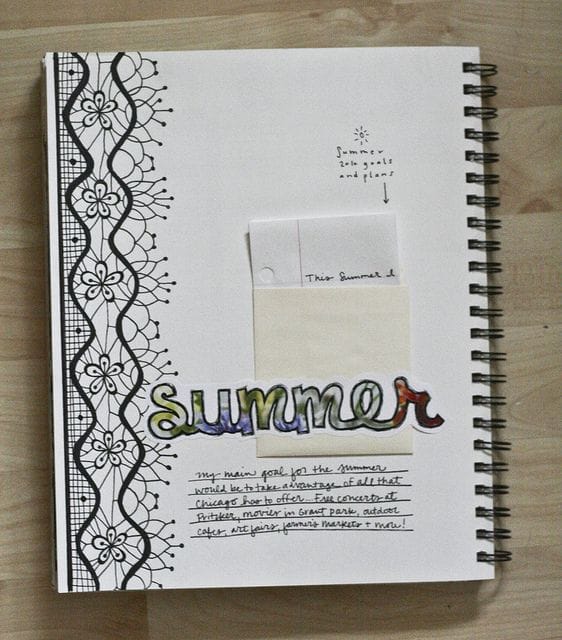 Summer
2010 goals
and plans
This Summer I
summer
my main goal for the summer
would be to take advantage of all that
Chicago has to offer. Free concerts at
Pritzker, movies in Grant Park, outdoor
cafes, art fairs, farmer's markets + more!